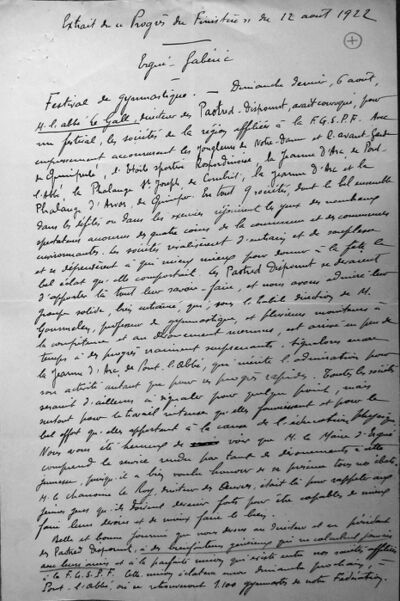 Extrait du " Progrès du Finistère " du 12 août 1922
Ergué-Gabéric
Festival de gymnastique. — Dimanche dernier, 6 août,
M. l'abbé Le Gall, directeur des Paotred-Dispount, avait convoqué, pour
un festival, les sociétés de la région affiliées à la F.G.S.P.F. Avec
empressement accoururent les Jongleurs de Notre-Dame et l'avant-Garde
de Quimperlé, l'Etoile sportive Rospordinoise, la Jeanne d'Arc de Pont-
l'Abbé, la Phalange St Joseph, de Combrit, la Jeanne d'Arc et la
Phalange d'Arvor, de Quimper. En tout 9 sociétés, dont le bel ensemble
dans les défilés, ou dans les exercices réjouirent les yeux des nombreux
spectateurs accourus des quatre coins de la commune et des communes
environnantes. Les sociétés rivalisèrent d'entrain et de souplesse
et se dépensèrent à qui mieux mieux pour donner à la fête le
bel éclat qu'elle comportait. Les Paotred Dispount se devaient
d'apporter là tout leur savoir-faire, et nous avons admiré leur
groupe solide, bien entraîné, qui, sous l'habile direction de M.
professeur de gymnastique, et plusieurs moniteurs à
la compétence et au dévouement reconnus, est arrivé en peu de
temps à des progrès vraiment surprenants. Signalons encore
la Jeanne d'Arc, de Pont-l'Abbé, qui mérite l'admiration pour
son activité autant que pour ses progrès rapides. Toutes les sociétés
seraient d'ailleurs à signaler pour quelque point, mais
surtout pour le travail intense qu'elles fournissent et pour le
bel effort qu'elles apportent à la cause de l'éducation physique.
Nous avons été heureux de voir que M. le Maire d'Ergué
comprend le service rendu par tant de dévouements à cette
jeunesse, puisqu'il a bien voulu honorer de sa présence tous nos ébats.
M. le chanoine Le Roy, directeur des Œuvres, était là pour rappeler aux
jeunes gens qu'ils doivent devenir forts pour être capables de mieux
faire leur devoir et de mieux faire le bien.
Belle et bonne journée que nous devons au directeur et au président
des Paotred Dispount, à des bienfaiteurs généreux qui ne calculent jamais
et à la parfaite union qui existe entre nos sociétés affiliées
à la F.G.S.P.F. Cette union éclatera encore dimanche prochain, à
Pont-l'Abbé, où se retrouveront 1.100 gymnastes de notre Fédération.